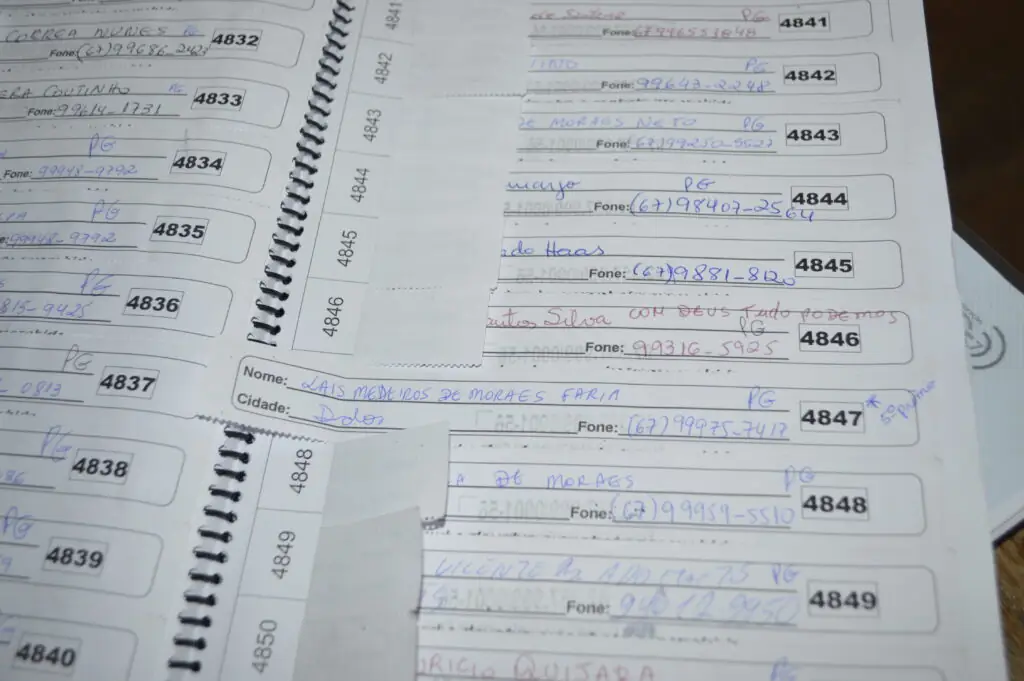 CORREA NUNES PG 4832
Fone: (67) 99686-2421
ERA COUTINHO PG 4833
Fone: 99614-1731
PG 4834
Fone: 99948-9792
PG 4835
99948-9792
PG 4836
815-9425
PG 4837
0813
PG 4838
PG 4839
4840
4841
4842
4843
4844
4845
4846
PG 4841
Fone:
PG 4842
Fone: 99643-2248
DE MORAES NETO PG 4843
Fone: (67) 99250-9527
PG 4844
Fone: (67) 98407-2564
Haas 4845
Fone: (67) 9881-8120
Silva COM DEUS Tudo PODEMOS
PG 4846
Fone: 99316-5925
Nome: LAIS MEDEIROS DE MORAES FARIA PG 4847 *
Cidade: Ddos Fone: (67) 99975-7417
4848
4849
4850
A DE MORAES PG 4848
Fone: (67) 99959-5510
VICENTE PG 4849
Fone:
QUIJADA PG